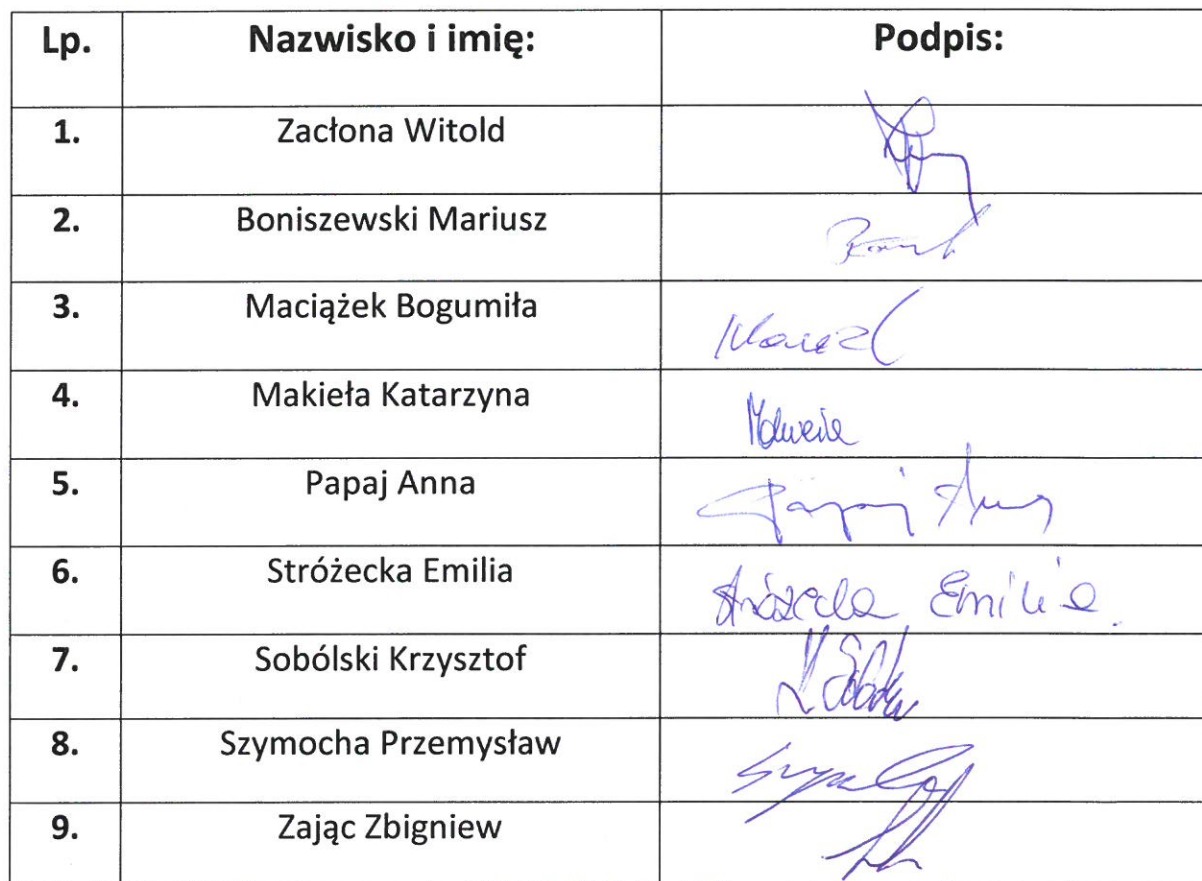 Lp. Nazwisko i imię: Podpis:
1. Zacłona Witold
2. Boniszewski Mariusz
3. Maciążek Bogumiła
4. Makieła Katarzyna
5. Papaj Anna Papaj Anna
6. Stróżecka Emilia Stróżecka Emilia.
7. Sobólski Krzysztof
8. Szymocha Przemysław
9. Zając Zbigniew